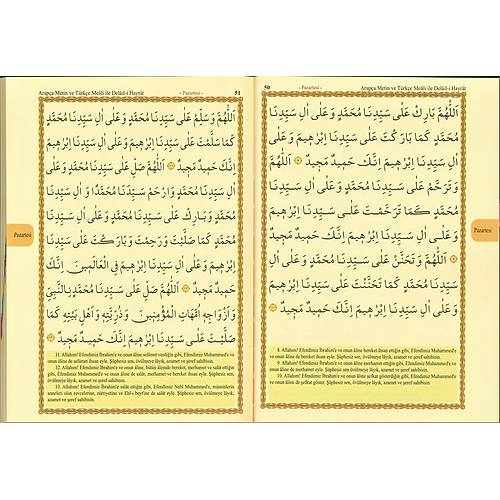 50 - Pazartesi - Arapça Metin ve Türkçe Meâli ile Delâil-i Hayrât
اَللّٰهُمَّ بَارِكْ عَلٰى سَيِّدِنَا مُحَمَّدٍ وَعَلٰى اٰلِ سَيِّدِنَا
مُحَمَّدٍ كَمَا بَارَكْتَ عَلٰى سَيِّدِنَا اِبْرٰهِيمَ وَعَلٰى
اٰلِ سَيِّدِنَا اِبْرٰهِيمَ اِنَّكَ حَمِيدٌ مَجِيدٌ ۞ اَللّٰهُمَّ
وَتَرَحَّمْ عَلٰى سَيِّدِنَا مُحَمَّدٍ وَعَلٰى اٰلِ سَيِّدِنَا
مُحَمَّدٍ كَمَا تَرَحَّمْتَ عَلٰى سَيِّدِنَا اِبْرٰهِيمَ
وَعَلٰى اٰلِ سَيِّدِنَا اِبْرٰهِيمَ اِنَّكَ حَمِيدٌ مَجِيدٌ
۞ اَللّٰهُمَّ وَتَحَنَّنْ عَلٰى سَيِّدِنَا مُحَمَّدٍ وَعَلٰى اٰلِ
سَيِّدِنَا مُحَمَّدٍ كَمَا تَحَنَّنْتَ عَلٰى سَيِّدِنَا اِبْرٰهِيمَ
وَعَلٰى اٰلِ سَيِّدِنَا اِبْرٰهِيمَ اِنَّكَ حَمِيدٌ مَجِيدٌ ۞
8. Allahım! Efendimiz İbrahim'e ve onun âline bereket ihsan ettiğin gibi, Efendimiz Muhammed'e
ve onun âline de bereket ihsan eyle. Şüphesiz sen, övülmeye lâyık, azamet ve şeref sahibisin.
9. Allahım! Efendimiz İbrahim'e ve onun âline merhamet ettiğin gibi, Efendimiz Muhammed'e ve
onun âline de merhamet eyle. Şüphesiz sen, övülmeye lâyık, azamet ve şeref sahibisin.
10. Allahım! Efendimiz İbrahim'e ve onun âline şefkat gösterdiğin gibi, Efendimiz Muhammed'e
ve onun âline de şefkat göster. Şüphesiz sen, övülmeye lâyık, azamet ve şeref sahibisin.
Pazartesi
Arapça Metin ve Türkçe Meâli ile Delâil-i Hayrât - Pazartesi - 51
اَللّٰهُمَّ وَسَلِّمْ عَلٰى سَيِّدِنَا مُحَمَّدٍ وَعَلٰى اٰلِ سَيِّدِنَا مُحَمَّدٍ
كَمَا سَلَّمْتَ عَلٰى سَيِّدِنَا اِبْرٰهِيمَ وَعَلٰى اٰلِ سَيِّدِنَا اِبْرٰهِيمَ
اِنَّكَ حَمِيدٌ مَجِيدٌ ۞ اَللّٰهُمَّ صَلِّ عَلٰى سَيِّدِنَا مُحَمَّدٍ وَعَلٰى
اٰلِ سَيِّدِنَا مُحَمَّدٍ وَارْحَمْ سَيِّدَنَا مُحَمَّدًا وَاٰلَ سَيِّدِنَا
مُحَمَّدٍ وَبَارِكْ عَلٰى سَيِّدِنَا مُحَمَّدٍ وَعَلٰى اٰلِ سَيِّدِنَا
مُحَمَّدٍ كَمَا صَلَّيْتَ وَرَحِمْتَ وَبَارَكْتَ عَلٰى سَيِّدِنَا
اِبْرٰهِيمَ وَعَلٰى اٰلِ سَيِّدِنَا اِبْرٰهِيمَ فِى الْعَالَمِينَ اِنَّكَ
حَمِيدٌ مَجِيدٌ ۞ اَللّٰهُمَّ صَلِّ عَلٰى سَيِّدِنَا مُحَمَّدٍ النَّبِيِّ
وَاَزْوَاجِهِ اُمَّهَاتِ الْمُؤْمِنِينَ وَذُرِّيَّتِهِ وَاَهْلِ بَيْتِهِ كَمَا
صَلَّيْتَ عَلٰى سَيِّدِنَا اِبْرٰهِيمَ اِنَّكَ حَمِيدٌ مَجِيدٌ ۞
11. Allahım! Efendimiz İbrahim'e ve onun âline selâmet verdiğin gibi, Efendimiz Muhammed'e ve
onun âline de selâmet ihsan eyle. Şüphesiz sen, övülmeye lâyık, azamet ve şeref sahibisin.
12. Allahım! Efendimiz İbrahim'e ve onun âline, bütün âlemde bereket, merhamet ve salât ettiğin
gibi, Efendimiz Muhammed'e ve onun âline de salât, merhamet ve bereket ihsan eyle. Şüphesiz sen,
övülmeye lâyık, azamet ve şeref sahibisin.
13. Allahım! Efendimiz İbrahim'e salât ettiğin gibi, Efendimiz Nebî Muhammed'e, müminlerin
anneleri olan zevcelerine, zürriyetine ve Ehl-i beyti'ne de salât eyle. Şüphesiz sen,
övülmeye lâyık, azamet ve şeref sahibisin.
Pazartesi